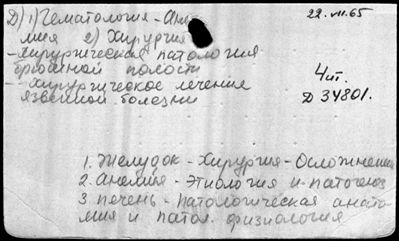 Д) 1) Гематология - Ане-
мия 2) Хирургия
- хирургическая патология
брюшной полости
- хирургическое лечение
язвенной болезни
22.VII.65
4 it.
D 34801.
1. Желудок - Хирургия - Осложнения
2. Анемия - Этиология и патогенез
3 печень - патологическая анато
мия и патол. физиология